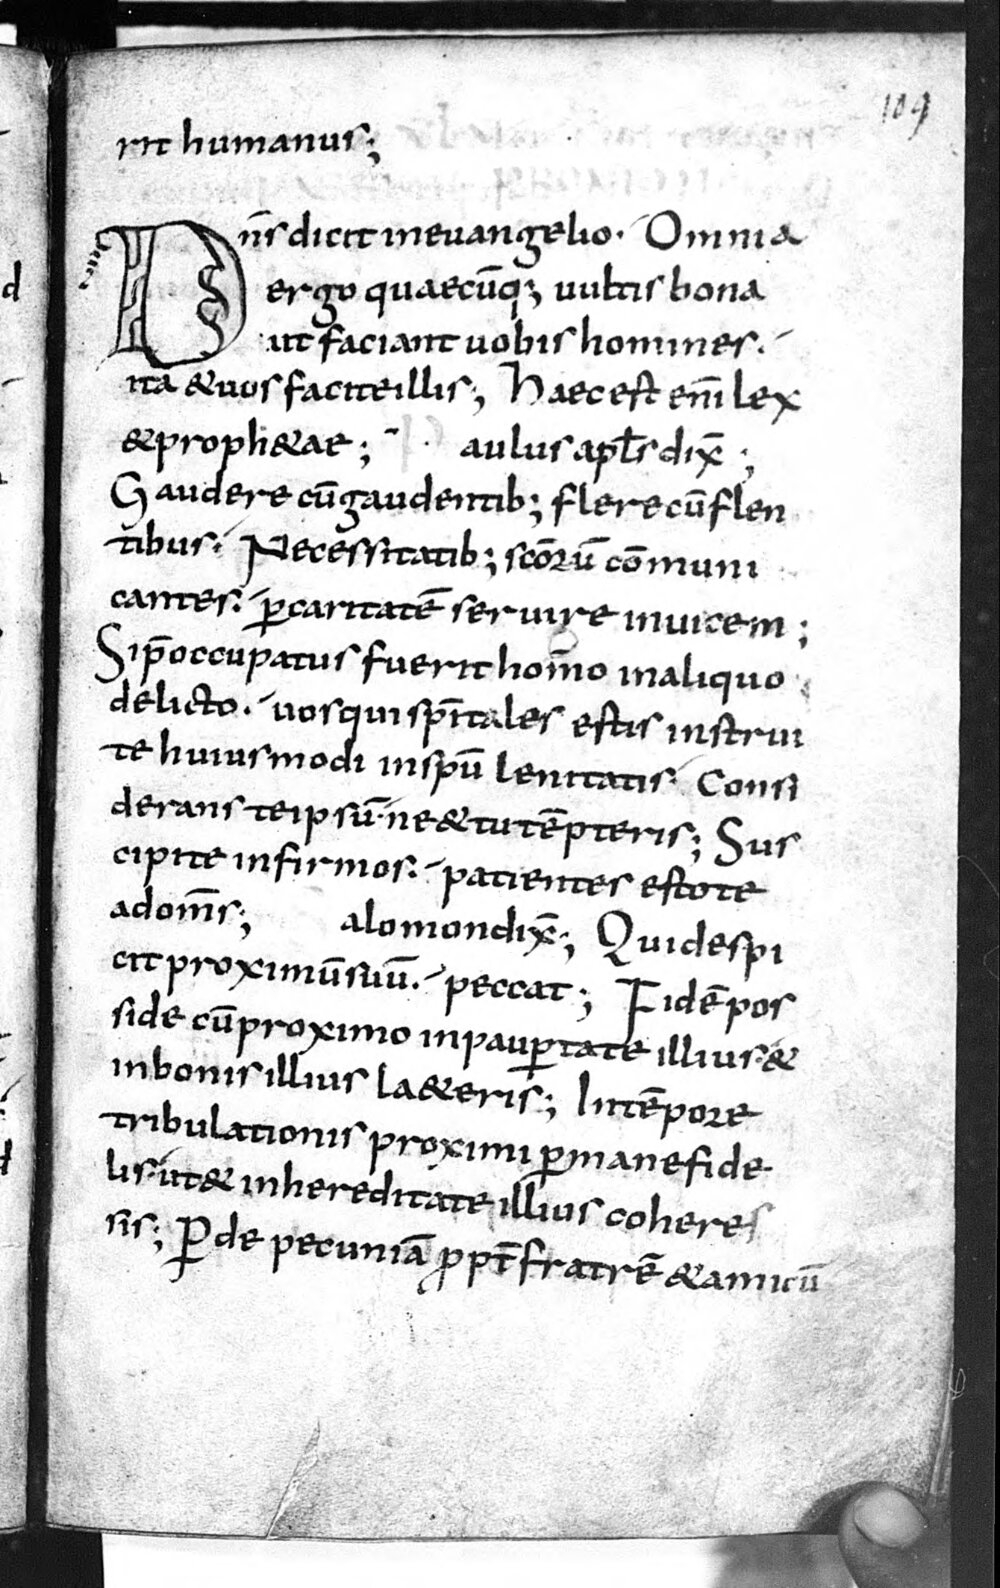 109
rit humanus;
Dn̄s dicit in euangelio. Omnia
ergo quaecūq; uultis bona
ut faciant uobis homines.
ita & uos facite illis; Haec est enī lex
& proph&ae; aulus apl̄s dix̄;
Gaudere cū gaudentib; flere cū flen
tibus. Necessitatib; sc̄orū cōmuni
cantes. p̄ caritatē seruire inuicem;
Si p̄occupatus fuerit homo in aliquo
delicto. uos qui sp̄itales estis instrui
te huiusmodi in sp̄ū lenitatis. Consi
derans te ipsū. ne & tu tēpteris; Sus
cipite infirmos. patientes estote
ad om̄s; alomon dix̄; Qui despi
cit proximū suū. peccat; Fidē pos
side cū proximo in paup̄tate illius. &
in bonis illius la&eris; In tēpore
tribulationis proximi p̄mane fide
lis. ut & in hereditate illius coheres
sis; P̄de pecuniā ꝓpt̄ fratrē & amicū